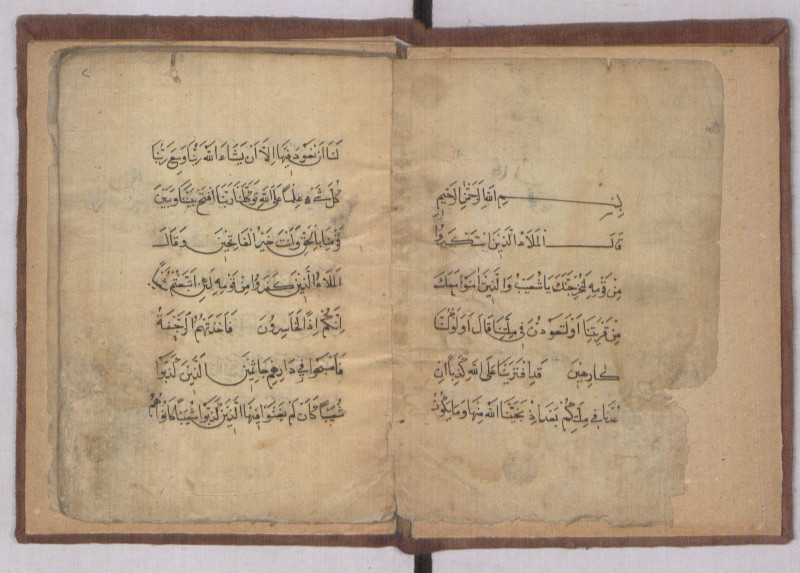 بسم الله الرحمن الرحيم
قال الملاء الذين استكبروا
من قومه لنخرجنك يا شعيب والذين امنوا معك
من قريتنا او لتعودن في ملتنا قال اولو كنا
كارهين قد افترينا على الله كذبا ان
عدنا في ملتكم بعد اذ نجينا الله منها وما يكون
لنا ان نعود فيها الا ان يشاء الله ربنا وسع ربنا
كل شيء علما على الله توكلنا ربنا افتح بيننا وبين
قومنا بالحق وانت خير الفاتحين وقال
الملاء الذين كفروا من قومه لئن اتبعتم شعيبا
انكم اذا لخاسرون فاخذتهم الرجفة
فاصبحوا في دارهم جاثمين الذين كذبوا
شعيبا كان لم يغنوا فيها الذين كذبوا شعيبا كانوا هم